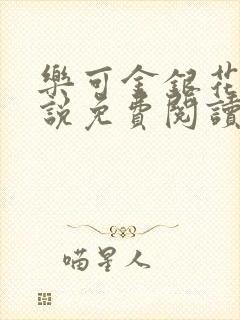 樂可金銀花
說免費閱讀
喵星人